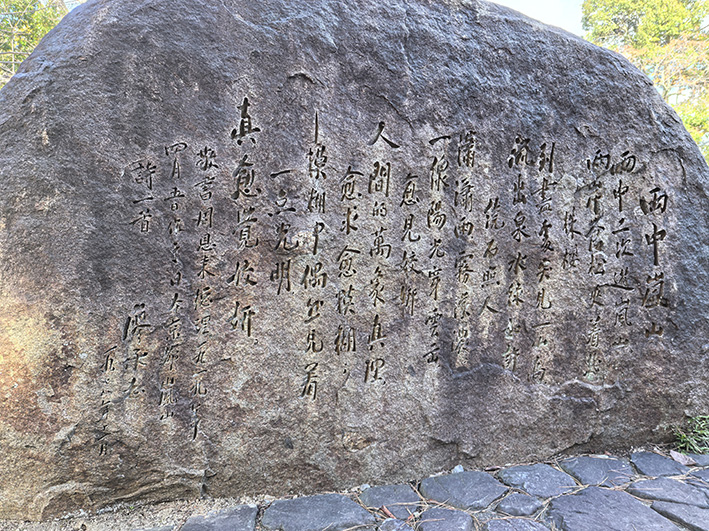 雨中嵐山
雨中二次遊嵐山
兩岸蒼松夾着幾
株櫻
到盡處突見一山高
流出泉水綠如許
繞石照人
瀟瀟雨霧濛濃
一線陽光穿雲出
愈見姣妍
人間的萬象真理
愈求愈模糊
模糊中偶然見着
一點光明
真愈覺姣妍
敬書周恩來總理一九一九年
四月五日 日本京都嵐山
詩一首
廖承志